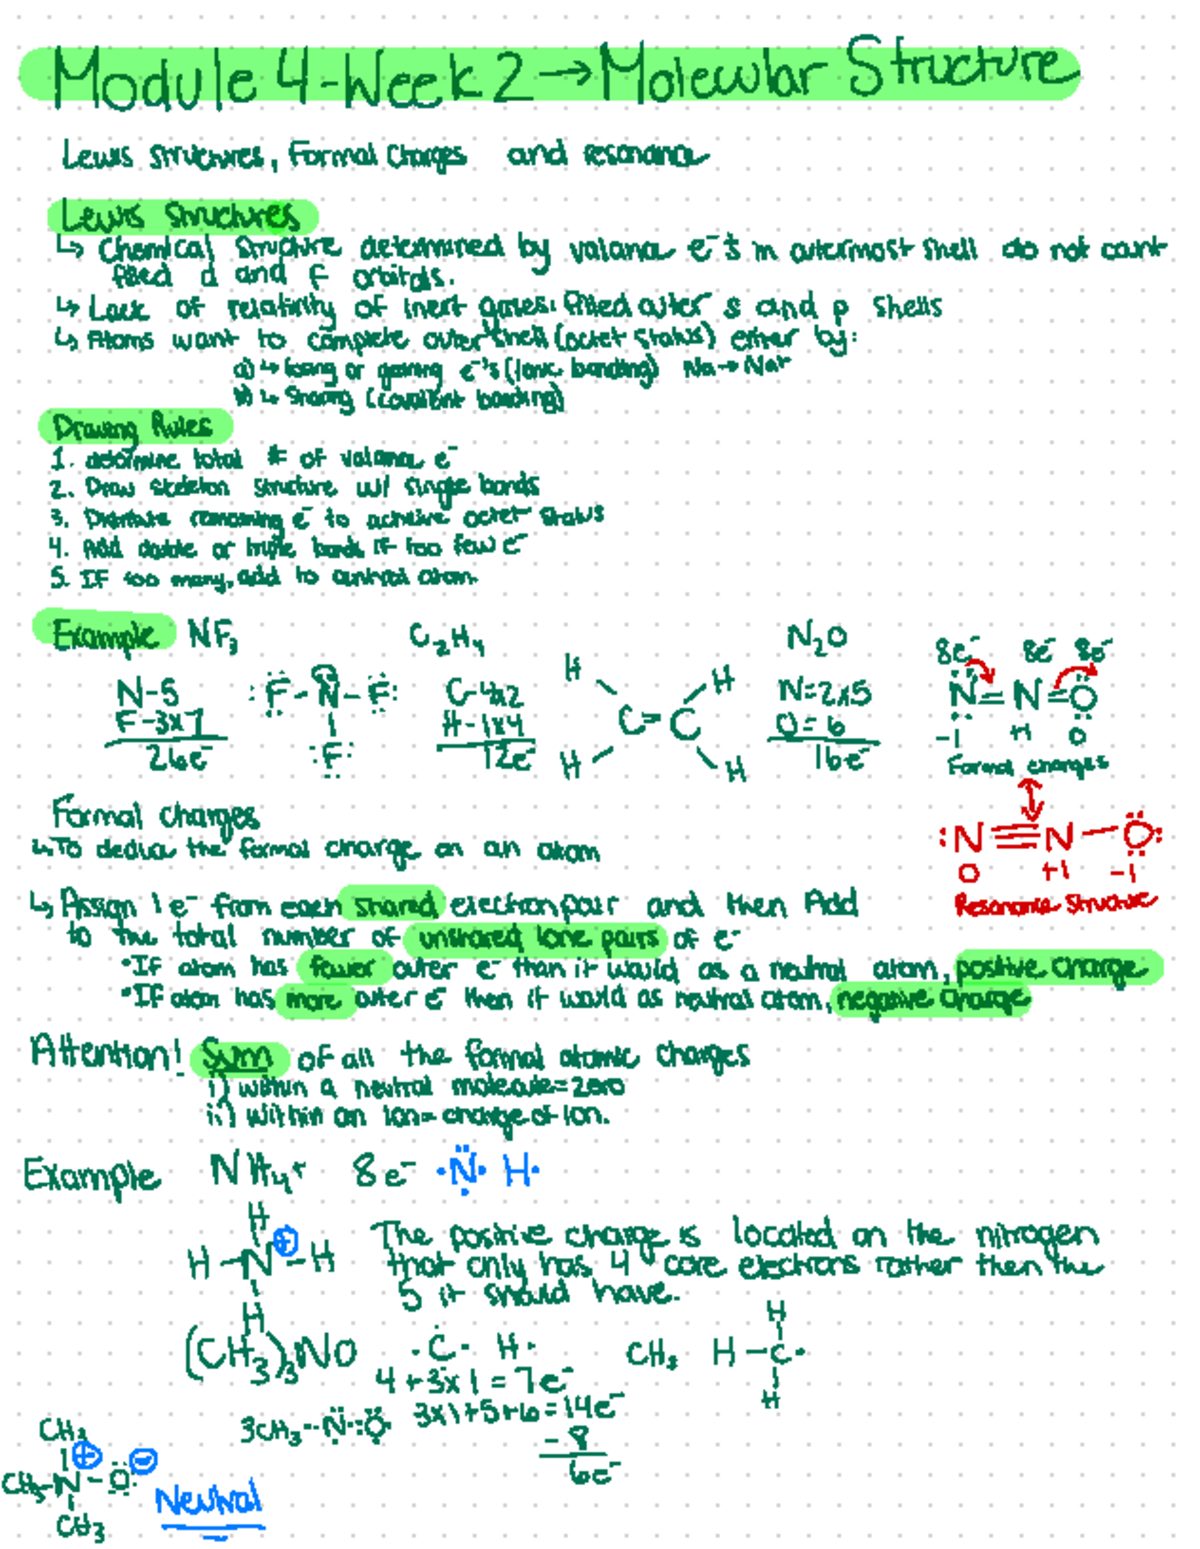 Module 4-Week 2 → Molecular Structure
Lewis structures, Formal Charges and resonance
Lewis Structures
↳ Chemical Structure determined by valance e⁻'s in outermost shell do not count
filled d and f orbitals.
↳ Lack of relativity of inert gases: filled outer s and p shells
↳ Atoms want to complete outer shell (octet status) either by:
a) ↳ losing or gaining e⁻'s (ionic bonding) Na → Na⁺
b) ↳ Sharing (covalent bonding)
Drawing Rules
1. determine total # of valance e⁻
2. Draw skeleton structure w/ single bonds
3. Distribute remaining e⁻ to achieve octet status
4. Add double or triple bonds if too few e⁻
5. If too many, add to central atom.
Example NF₃ C₂H₄ N₂O
N-5
F-3x7
26e⁻
:F-N-F:
:F:
C-4x2
H-1x4
12e⁻
H H
C=C
H H
N=2x5
O=6
16e⁻
8e⁻ 8e⁻ 8e⁻
N=N=O
-1 +1 0
Formal charges
:N≡N-O:
0 +1 -1
Resonance Structure
Formal charges
↳ To deduce the formal charge on an atom
↳ Assign 1e⁻ from each shared electron pair and then Add
to the total number of unshared lone pairs of e⁻
•If atom has fewer outer e⁻ than it would as a neutral atom, positive charge
•If atom has more outer e⁻ then it would as neutral atom, negative charge
Attention! Sum of all the formal atomic charges
i) within a neutral molecule=zero
ii) within an ion= charge of ion.
Example NH₄⁺ 8e⁻ ·N· H·
H
H-N⊕-H
H
The positive charge is located on the nitrogen
that only has 4 core electrons rather then the
5 it should have.
(CH₃)₃NO ·C· H· CH₃
4+3x1=7e⁻
H
H-C·
H
3CH₃··N··O: 3x1+5+6=14e⁻
-8
6e⁻
CH₃ ⊕ ⊖
CH₃-N-O:
CH₃
Neutral